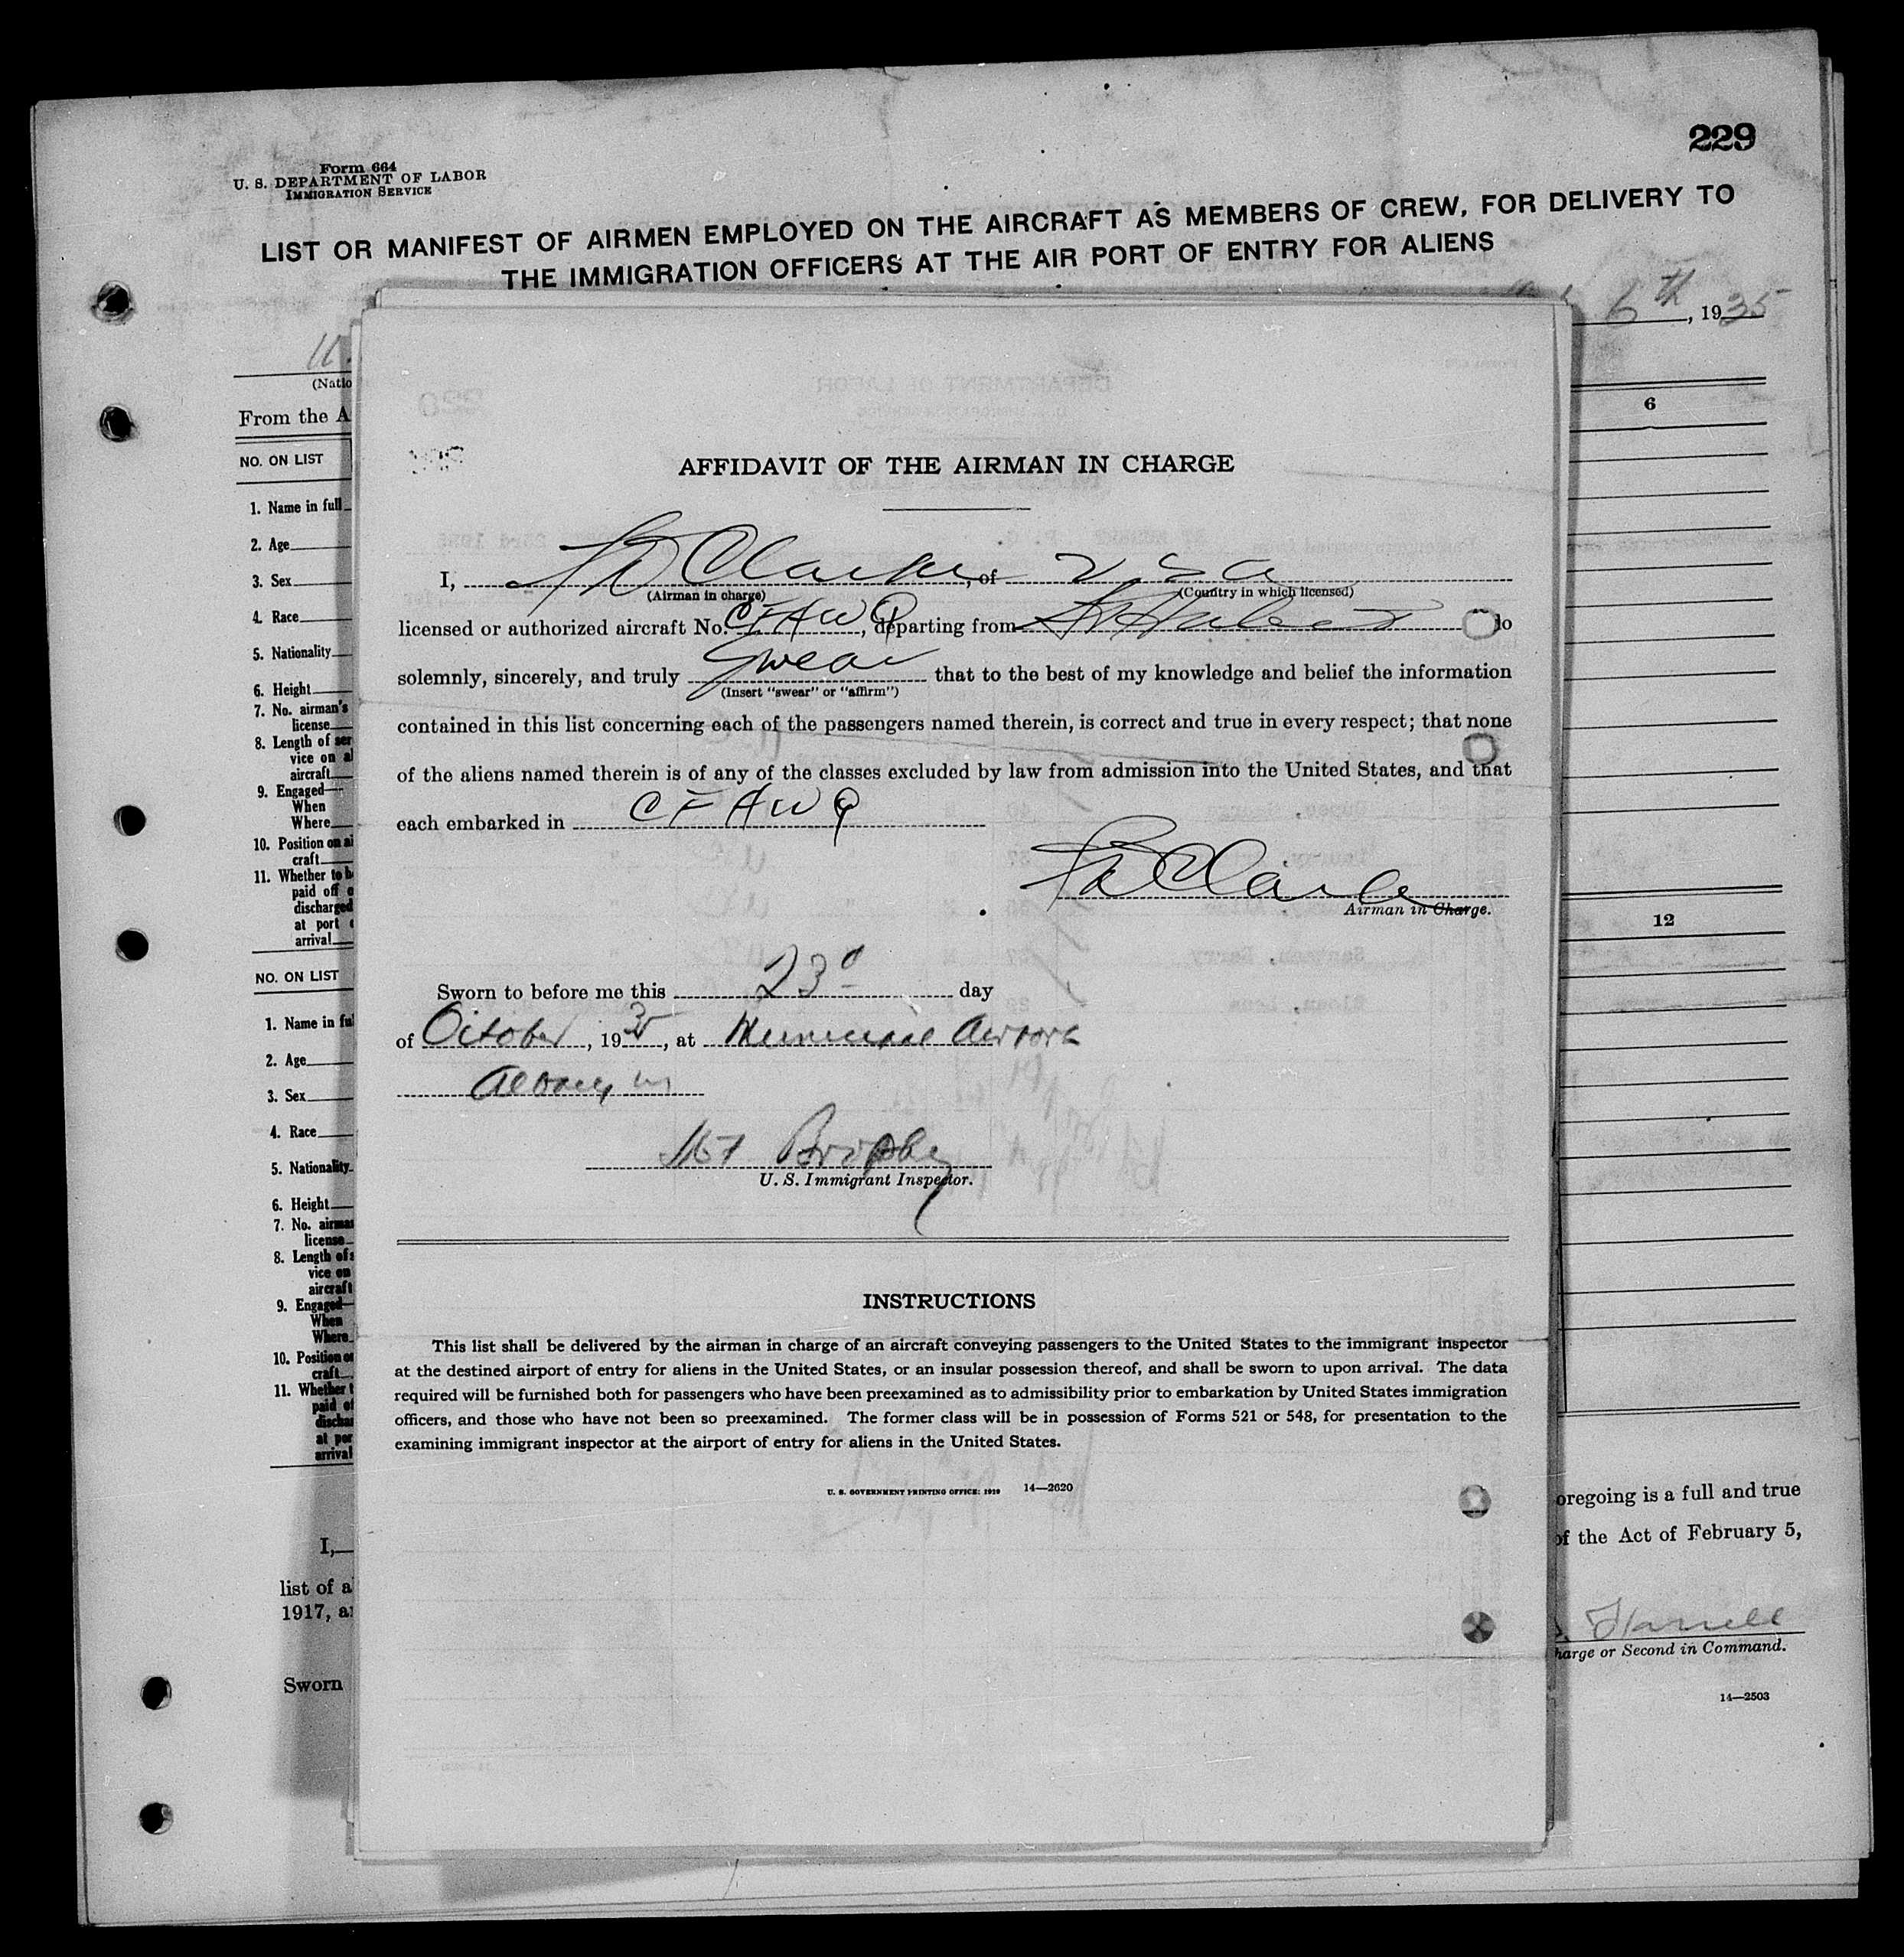 229
Form 664
U. S. DEPARTMENT OF LABOR
IMMIGRATION SERVICE
LIST OR MANIFEST OF AIRMEN EMPLOYED ON THE AIRCRAFT AS MEMBERS OF CREW, FOR DELIVERY TO
THE IMMIGRATION OFFICERS AT THE AIR PORT OF ENTRY FOR ALIENS
6th, 1935
(Natio
From the A
6
NO. ON LIST
1. Name in full
2. Age
3. Sex
4. Race
5. Nationality
6. Height
7. No. airman's
license
8. Length of ser
vice on al
aircraft
9. Engaged—
When
Where
10. Position on ai
craft
11. Whether to b
paid off o
discharged
at port
arrival
12
NO. ON LIST
1. Name in ful
2. Age
3. Sex
4. Race
5. Nationality
6. Height
7. No. airman
license
8. Length of s
vice on
aircraft
9. Engaged—
When
Where
10. Position on
craft
11. Whether t
paid of
dischar
at por
arrival
I,
list of a
1917, a
Sworn
AFFIDAVIT OF THE AIRMAN IN CHARGE
I, Clarke, of U.S.A
(Airman in charge) (Country in which licensed)
licensed or authorized aircraft No. CFAWQ, departing from St Hubert do
solemnly, sincerely, and truly swear that to the best of my knowledge and belief the information
(Insert "swear" or "affirm")
contained in this list concerning each of the passengers named therein, is correct and true in every respect; that none
of the aliens named therein is of any of the classes excluded by law from admission into the United States, and that
each embarked in CFAWQ
Clarke
Airman in Charge.
Sworn to before me this 23d day
of October, 1935, at Municipal Airport
Albany NY
Brophy
U. S. Immigrant Inspector.
INSTRUCTIONS
This list shall be delivered by the airman in charge of an aircraft conveying passengers to the United States to the immigrant inspector
at the destined airport of entry for aliens in the United States, or an insular possession thereof, and shall be sworn to upon arrival. The data
required will be furnished both for passengers who have been preexamined as to admissibility prior to embarkation by United States immigration
officers, and those who have not been so preexamined. The former class will be in possession of Forms 521 or 548, for presentation to the
examining immigrant inspector at the airport of entry for aliens in the United States.
U. S. GOVERNMENT PRINTING OFFICE: 1929 14—2620
oregoing is a full and true
of the Act of February 5,
harge or Second in Command.
14—2503